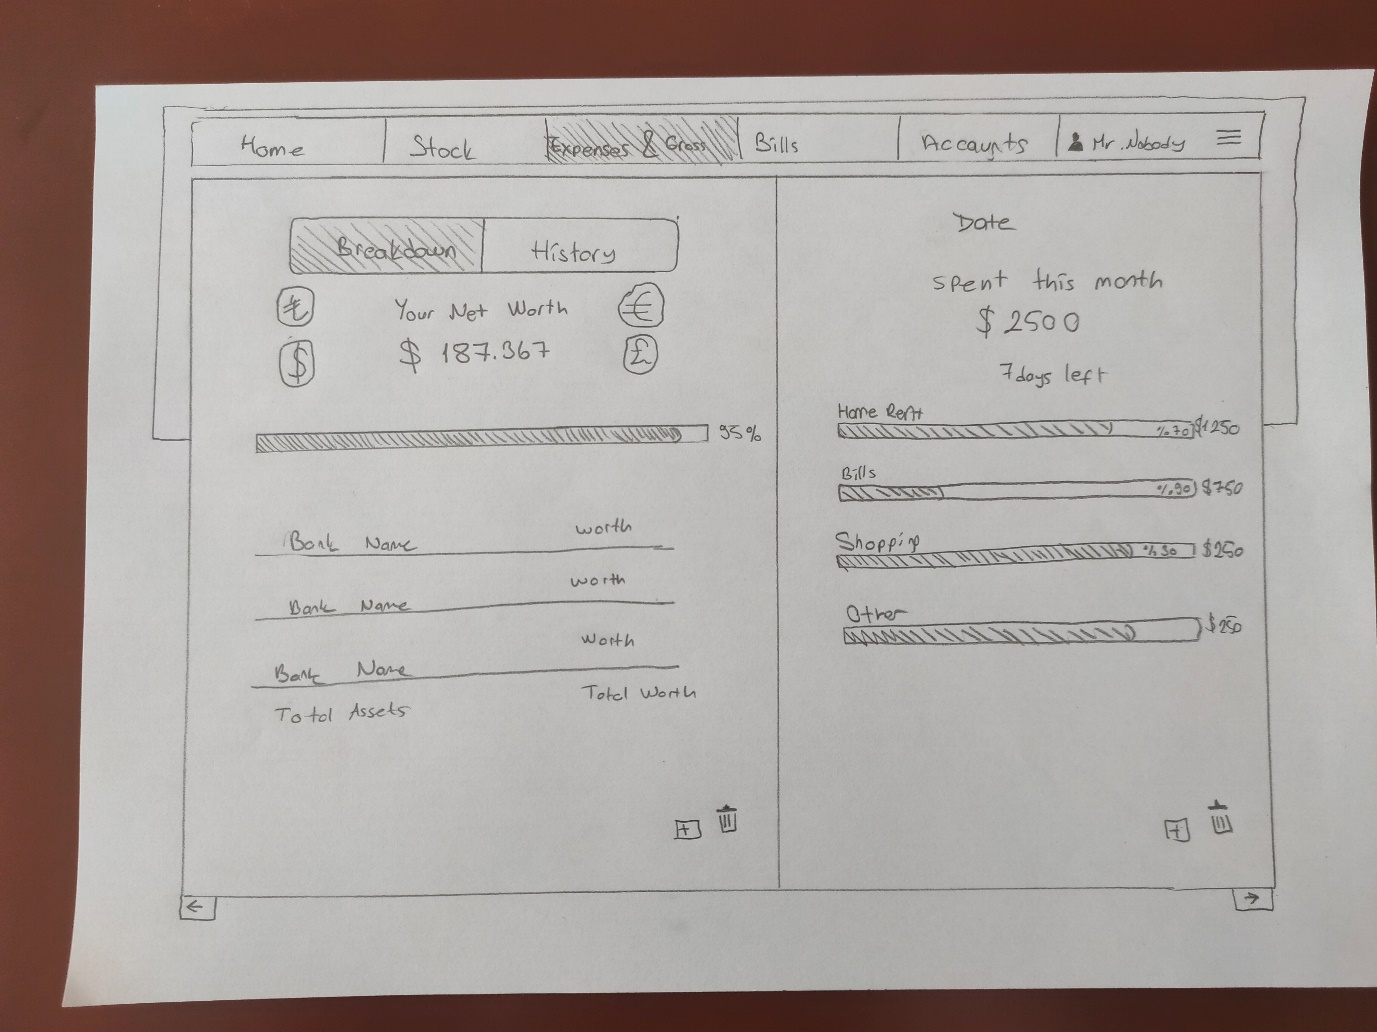 Home Stock Expenses & Gross Bills Accaunts Mr. Nobody
Breakdown History
₺ Your Net Worth €
$ $ 187.367 £
95%
Bank Name worth
Bank Name worth
Bank Name Worth
Total Assets Total Worth
+
Date
spent this month
$ 2500
7 days left
Home Rent
%70 $1250
Bills
%90 $750
Shopping
%30 $250
Other
$250
+
← →